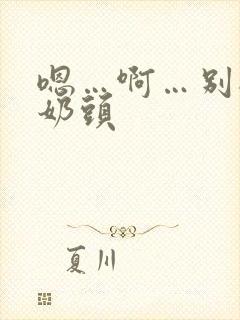 嗯…啊…别
奶頭
夏川